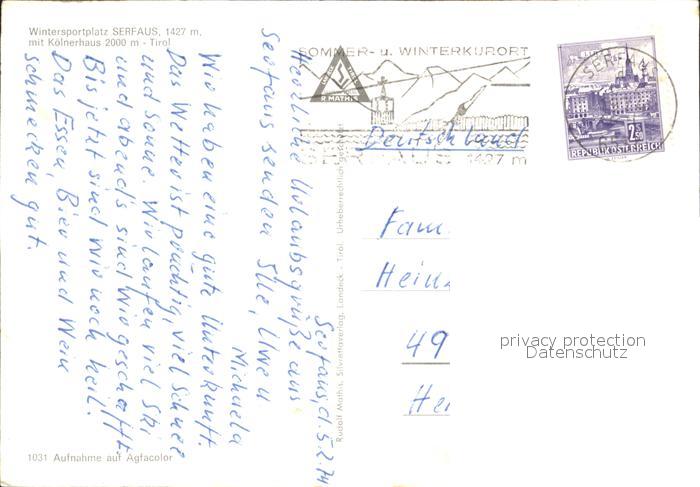 Wintersportplatz SERFAUS, 1427 m,
mit Kölnerhaus 2000 m - Tirol
SOMMER- u. WINTERKURORT
R. MATHIS
SERFAUS 1427 m
SERFAUS
2.50
REPUBLIK ÖSTERREICH
Serfaus, d. 5.2.74
Herzliche Urlaubsgrüße aus
Serfaus senden Silke, Uwe u
Michaela
Wir haben eine gute Unterkunft.
Das Wetter ist prächtig, viel Schnee
und Sonne. Wir laufen viel Ski
und abends sind wir geschafft.
Bis jetzt sind wir noch heil.
Das Essen, Bier und Wein
schmecken gut.
Deutschland
Fam.
49
privacy protection
Datenschutz
Rudolf Mathis, Silvrettaverlag, Landeck - Tirol. Urheberrechtlich
1031 Aufnahme auf Agfacolor